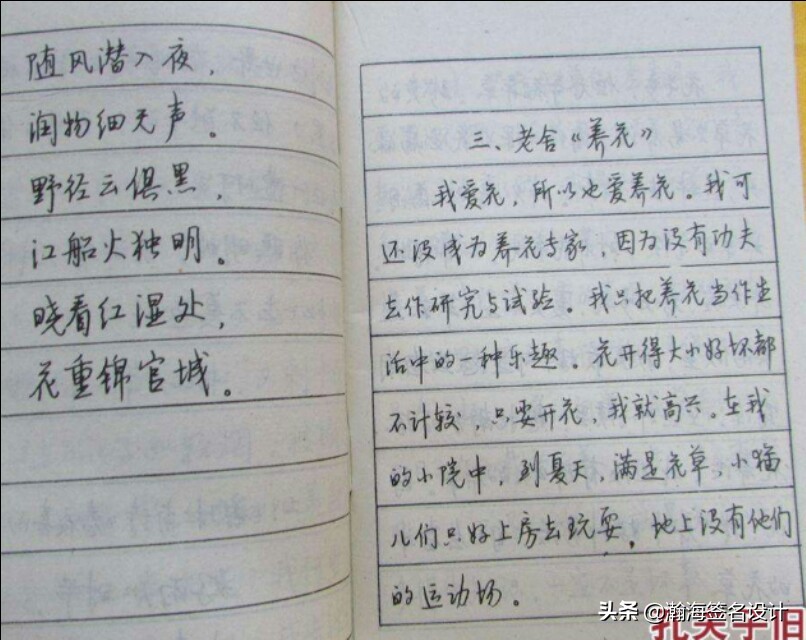 随风潜入夜，
润物细无声。
野径云俱黑，
江船火独明。
晓看红湿处，
花重锦官城。
三、老舍《养花》
我爱花，所以也爱养花。我可
还没成为养花专家，因为没有功夫
去作研究与试验。我只把养花当作生
活中的一种乐趣。花开得大小好坏都
不计较，只要开花，我就高兴。在我
的小院中，到夏天，满是花草，小猫
儿们只好上房去玩耍，地上没有他们
的运动场。
头条 @瀚海签名设计